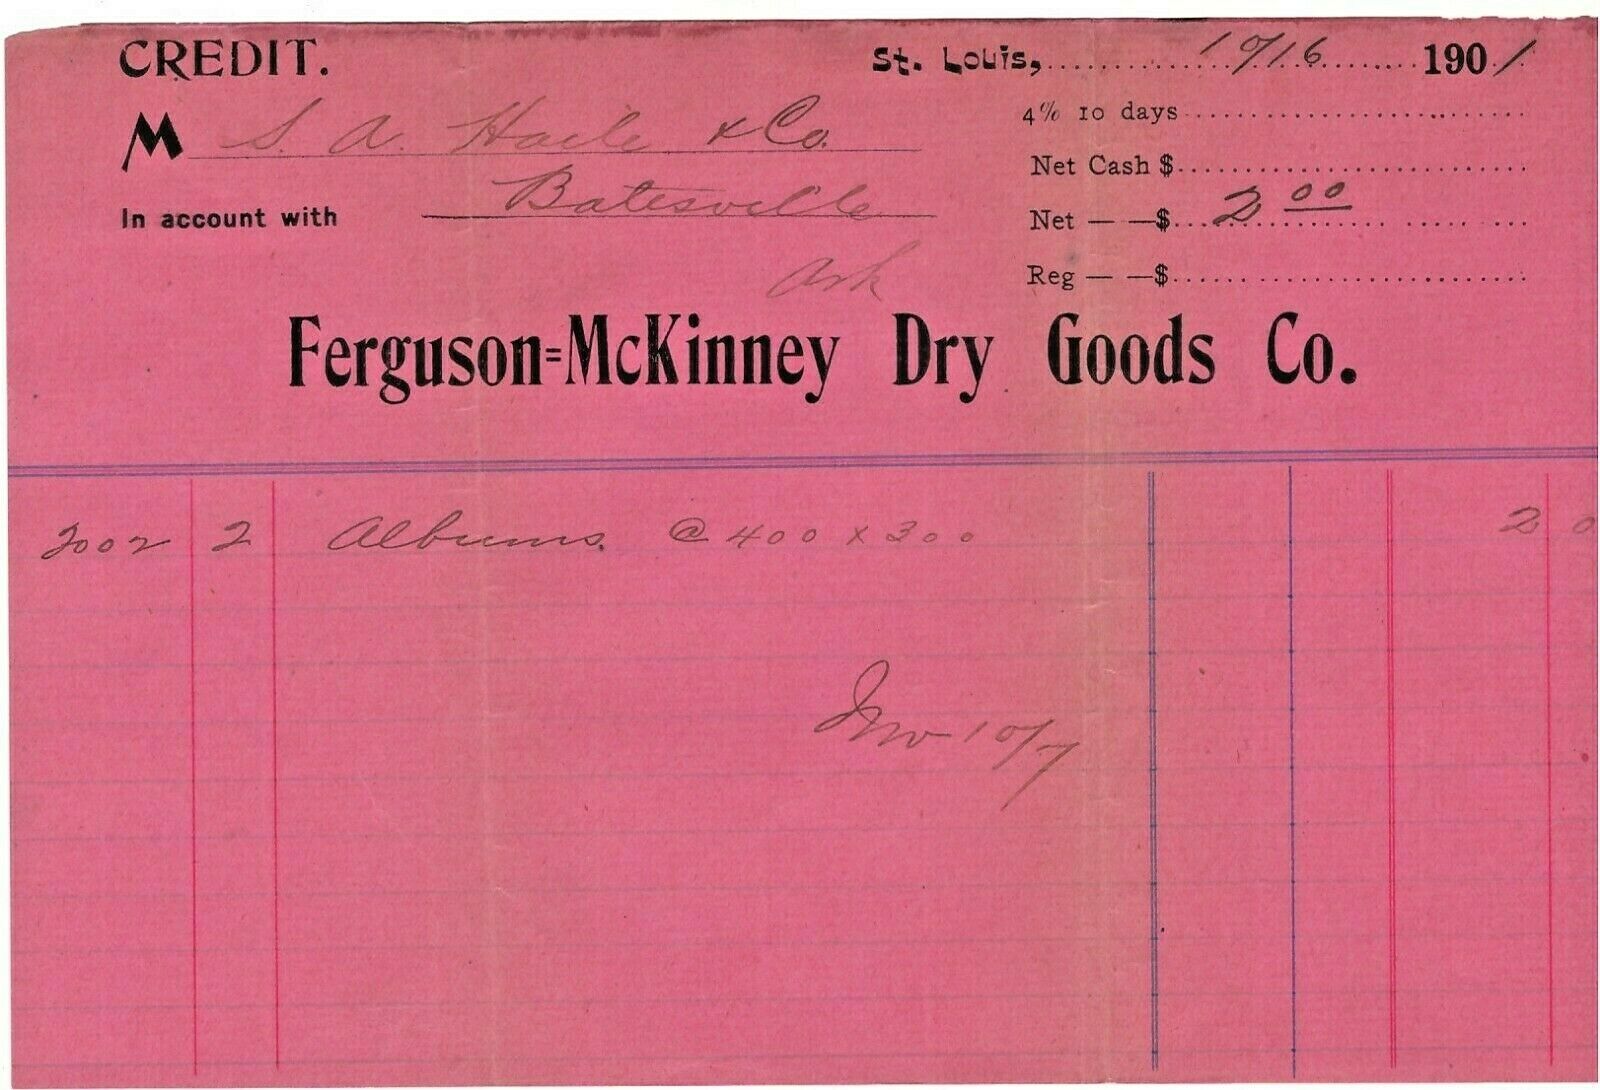 CREDIT.
St. Louis, 10/16 1901
M S. A. Haile & Co.
4% 10 days
Net Cash $
In account with Batesville
Net — —$ 2 00
Ark
Reg — —$
Ferguson=McKinney Dry Goods Co.
2002 2 Albums. @ 400 x 300 2 0
Inv 10/7